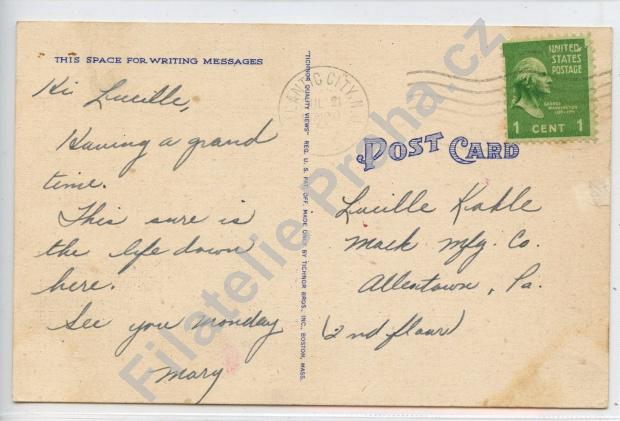 THIS SPACE FOR WRITING MESSAGES
Hi Lucille,
Having a grand
time.
This sure is
the life down
here.
See you monday
Mary
"TICHNOR QUALITY VIEWS" REG. U. S. PAT. OFF. MADE ONLY BY TICHNOR BROS., INC., BOSTON, MASS.
ANTIC CITY, N.
21
UNITED
STATES
POSTAGE
GEORGE
WASHINGTON
1 CENT 1
POST CARD
Lucille Kahle
Mack Mfg. Co.
Allentown, Pa.
(2nd floor)
Filatelie Praha.cz